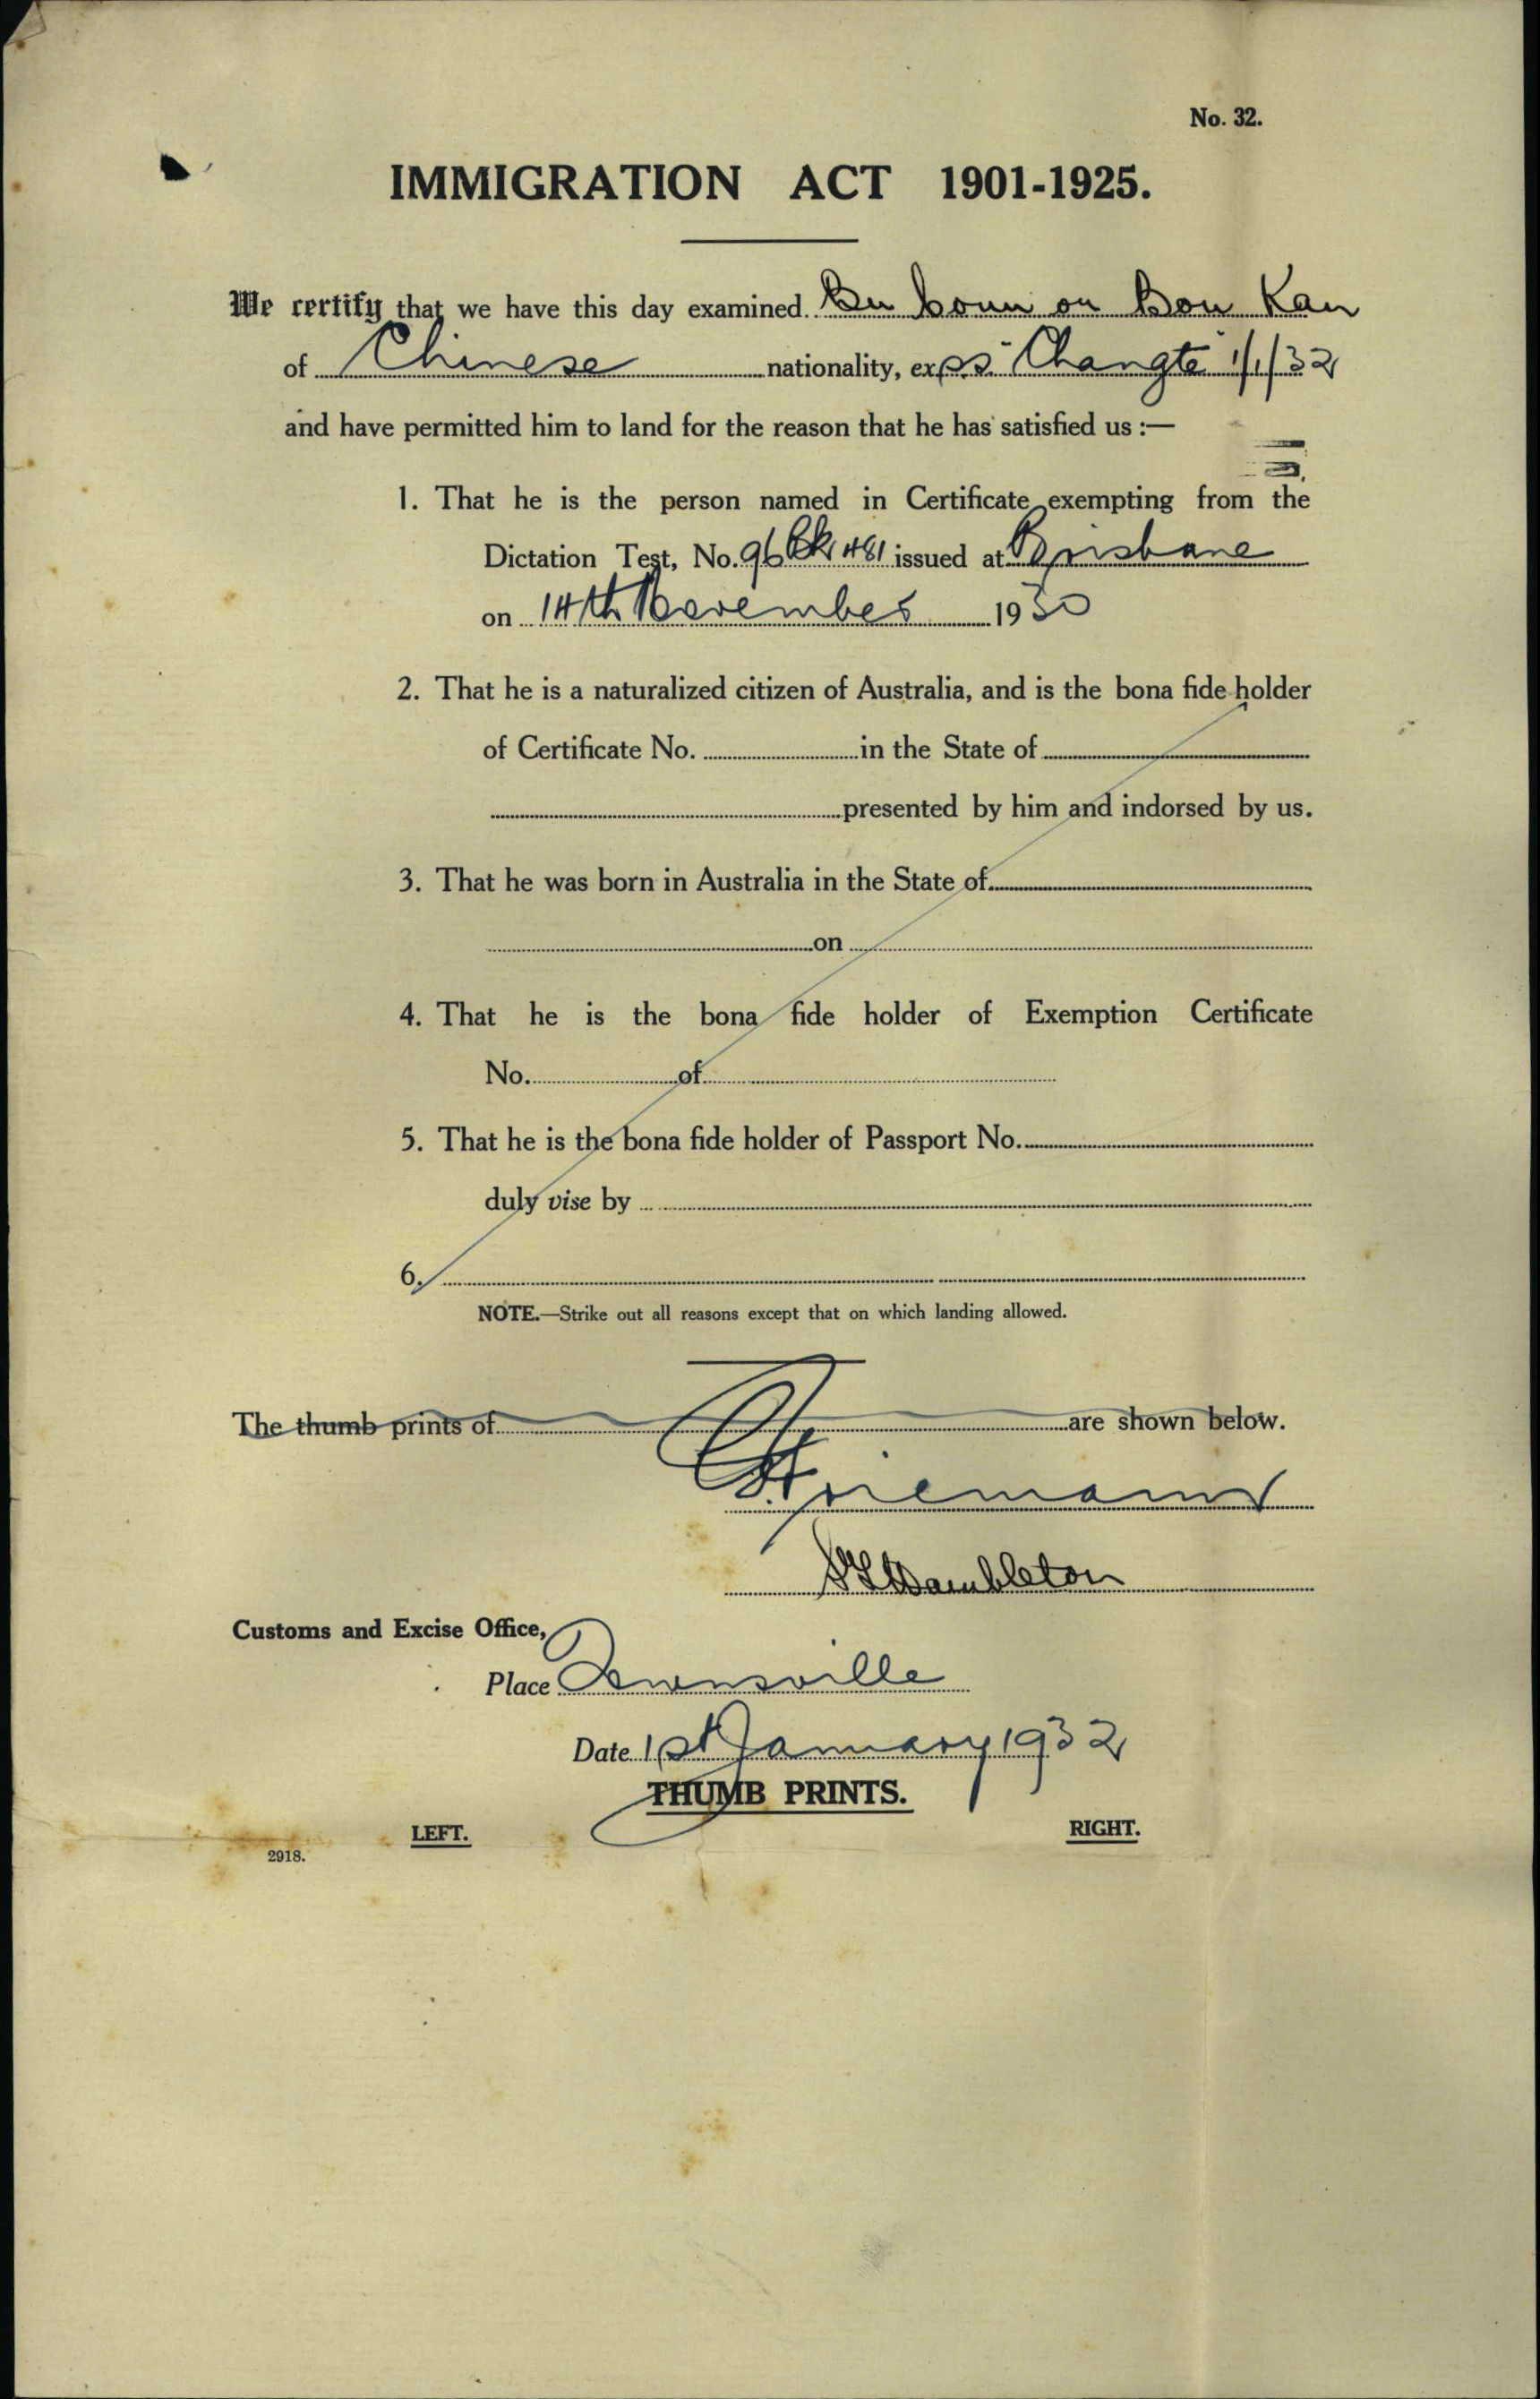 No. 32.
IMMIGRATION ACT 1901-1925.
We certify that we have this day examined on Kan
of Chinese nationality, ex s.s. "Changte" 1/1/32
and have permitted him to land for the reason that he has satisfied us :—
1. That he is the person named in Certificate exempting from the
Dictation Test, No. 96 Bk 481 issued at Brisbane
on 14th November 1930
2. That he is a naturalized citizen of Australia, and is the bona fide holder
of Certificate No. in the State of
presented by him and indorsed by us.
3. That he was born in Australia in the State of
on
4. That he is the bona fide holder of Exemption Certificate
No. of
5. That he is the bona fide holder of Passport No.
duly vise by
6.
NOTE.—Strike out all reasons except that on which landing allowed.
The thumb prints of are shown below.
Hambleton
Customs and Excise Office,
Place Townsville
Date 1st January 1932
THUMB PRINTS.
LEFT. RIGHT.
2918.